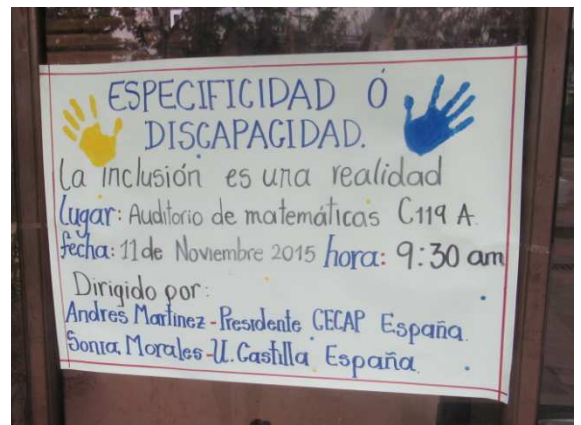 ESPECIFICIDAD Ó
DISCAPACIDAD.
La inclusión es una realidad
lugar: Auditorio de matemáticas C119 A.
fecha: 11 de Noviembre 2015 hora: 9:30 am
Dirigido por:
Andres Martinez - Presidente CECAP España.
Sonia Morales - U. Castilla España.